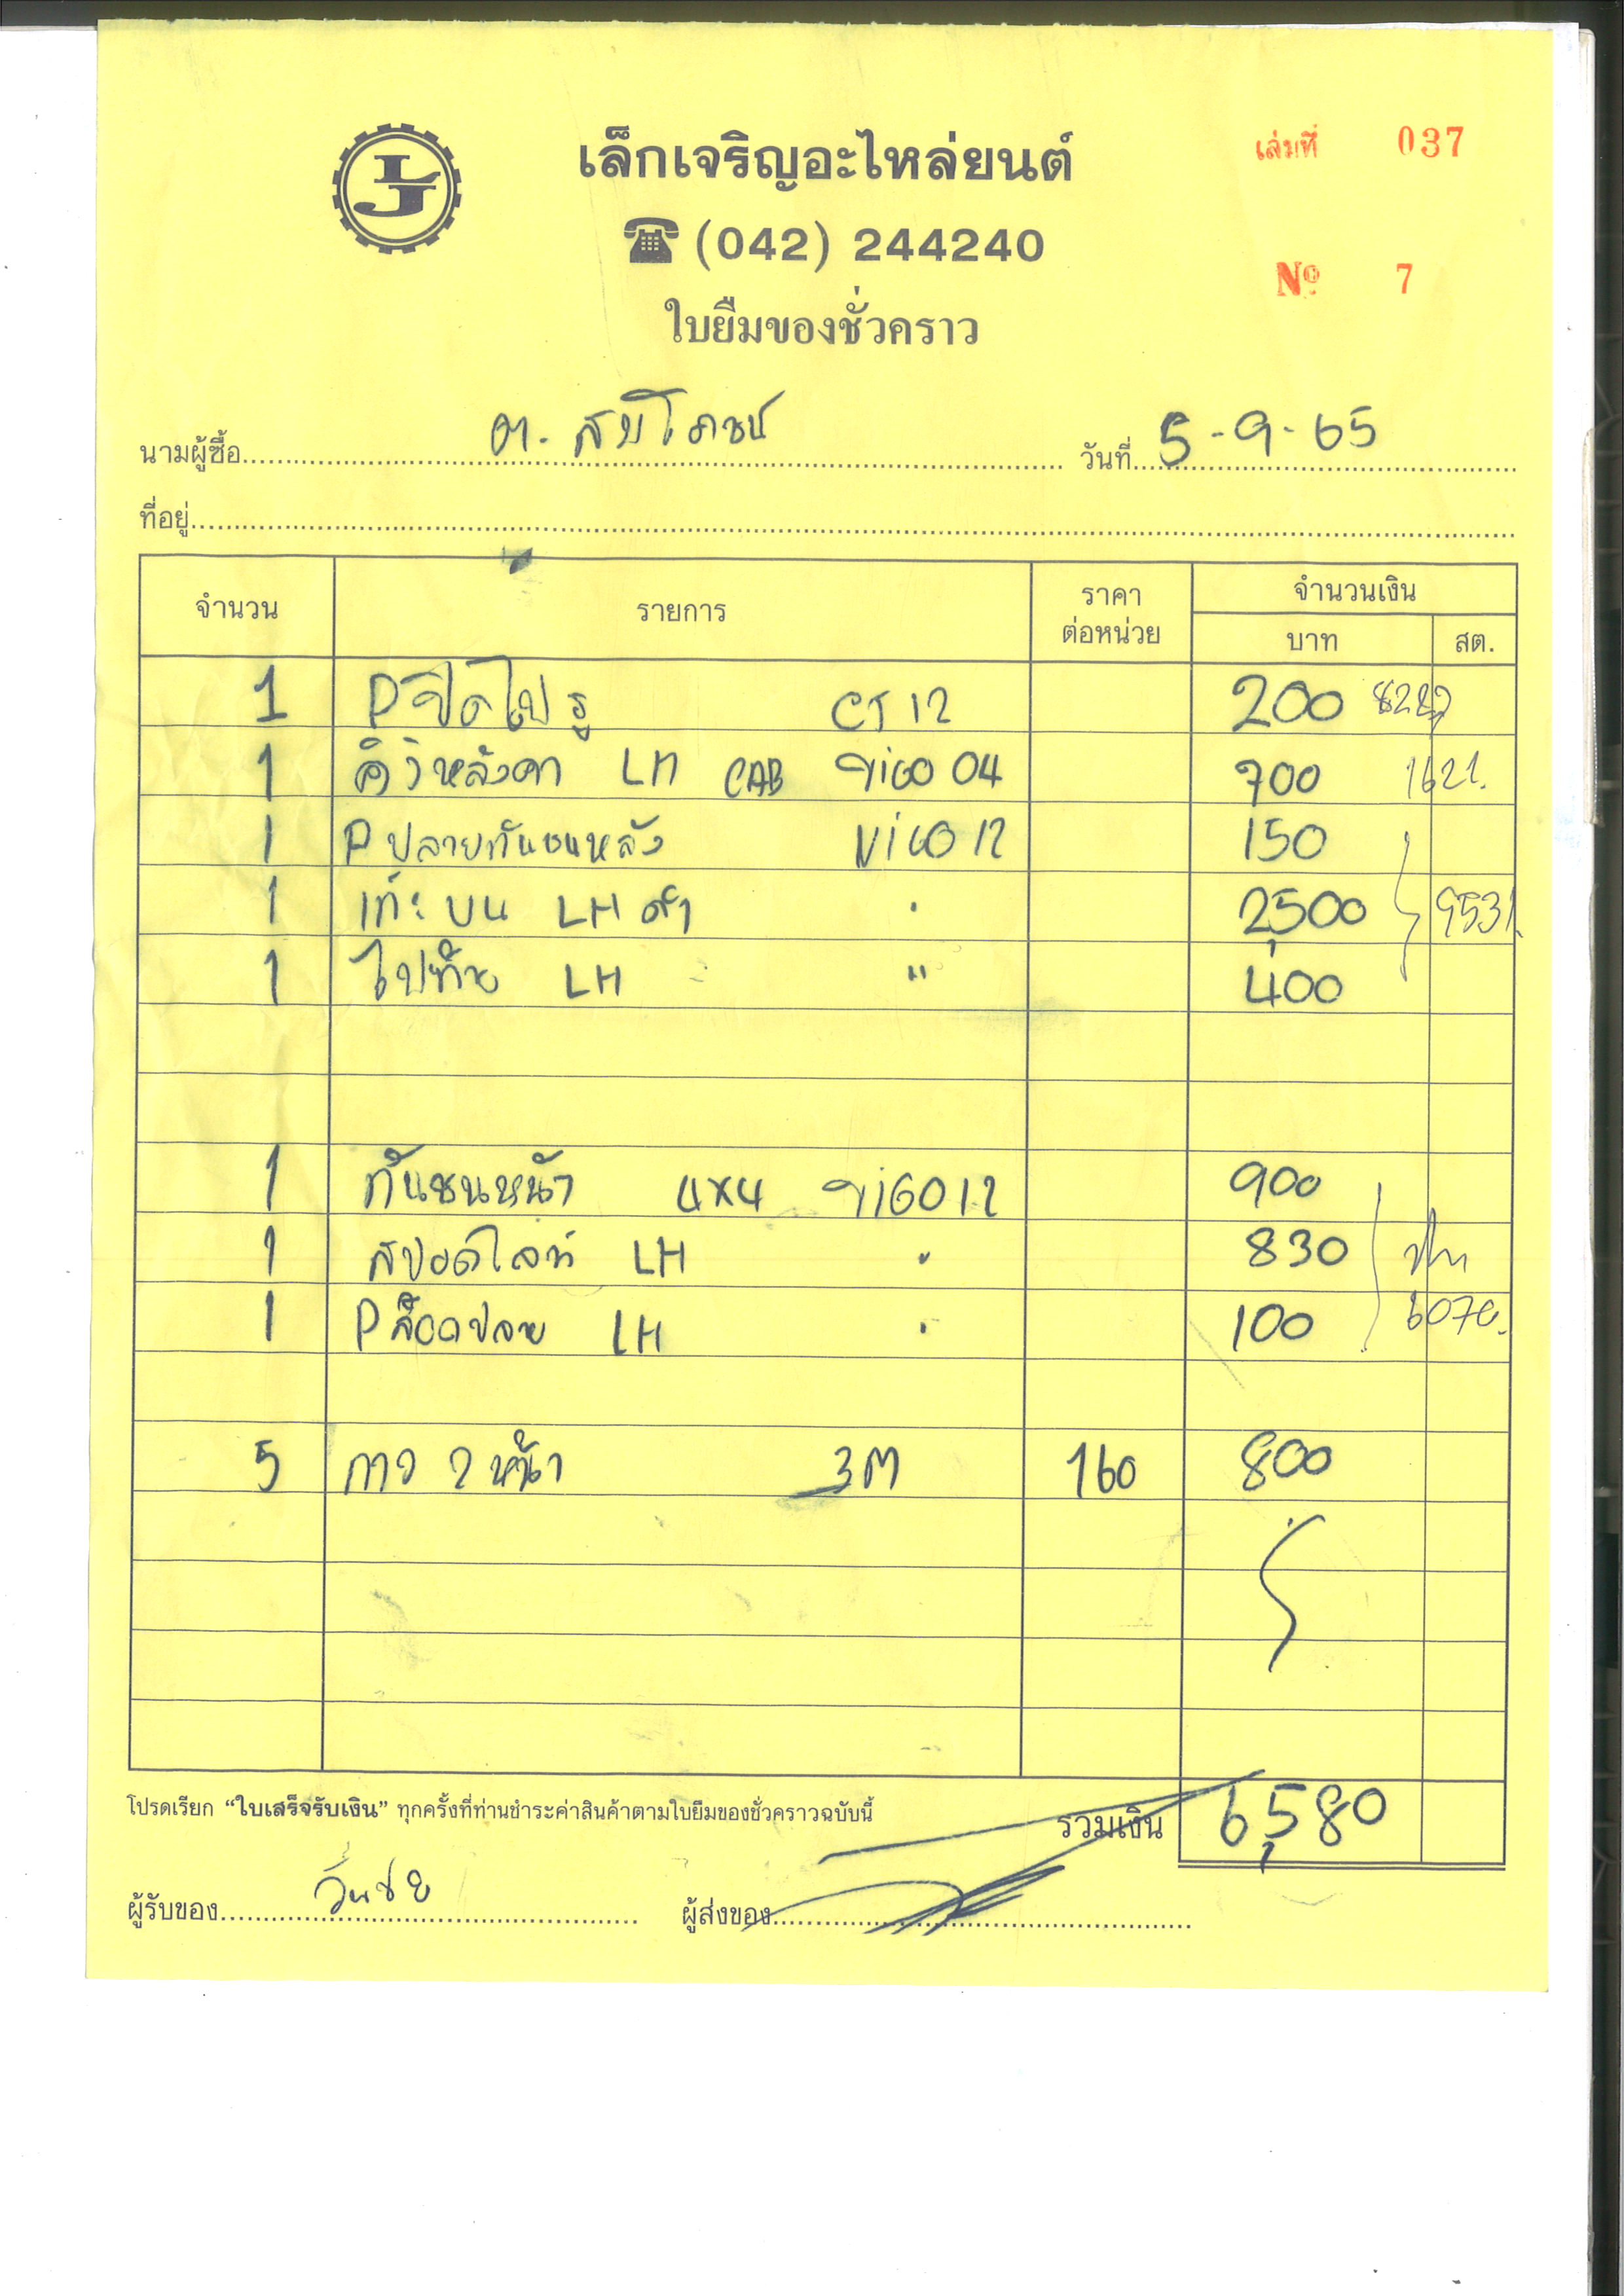 LJ
เล็กเจริญอะไหล่ยนต์
เล่มที่ 037
☎ (042) 244240
Nº 7
ใบยืมของชั่วคราว
นามผู้ซื้อ วันที่ 5-9-65
ที่อยู่
จำนวน รายการ ราคาต่อหน่วย จำนวนเงิน
บาท สต.
1 CJ 12 200
1 คิ้วหลังคา LH CAB VIGO 04 700 1621.
1 P ปลายกันชนหลัง VIGO 12 150
1 LH ดำ 2,500 9531.
1 ไฟท้าย LH " 400
1 กันชนหน้า 4x4 VIGO 12 900
1 สปอตไลท์ LH " 830
1 P ล็อคปลาย LH " 100
5 กาว 2 หน้า 3M 160 800
โปรดเรียก “ใบเสร็จรับเงิน” ทุกครั้งที่ท่านชำระค่าสินค้าตามใบยืมของชั่วคราวฉบับนี้
รวมเงิน 6,580
ผู้รับของ วันชัย ผู้ส่งของ